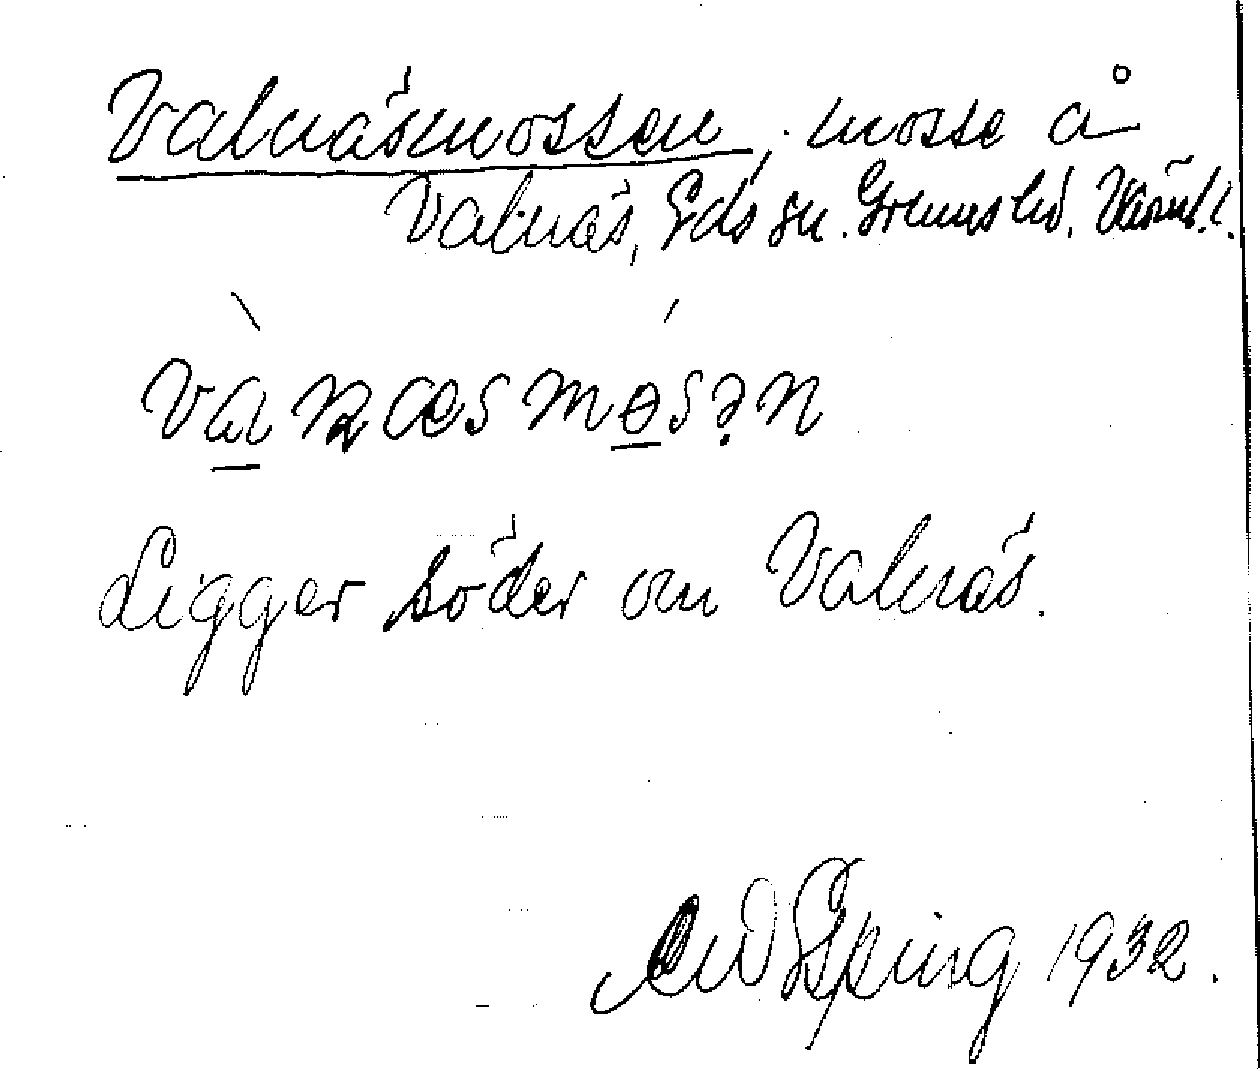 Valnäsmossen, mosse å
Valnäs, Eds sn. Grums hd. Värml.
vànæsmósən
Ligger söder om Valnäs.
1932.